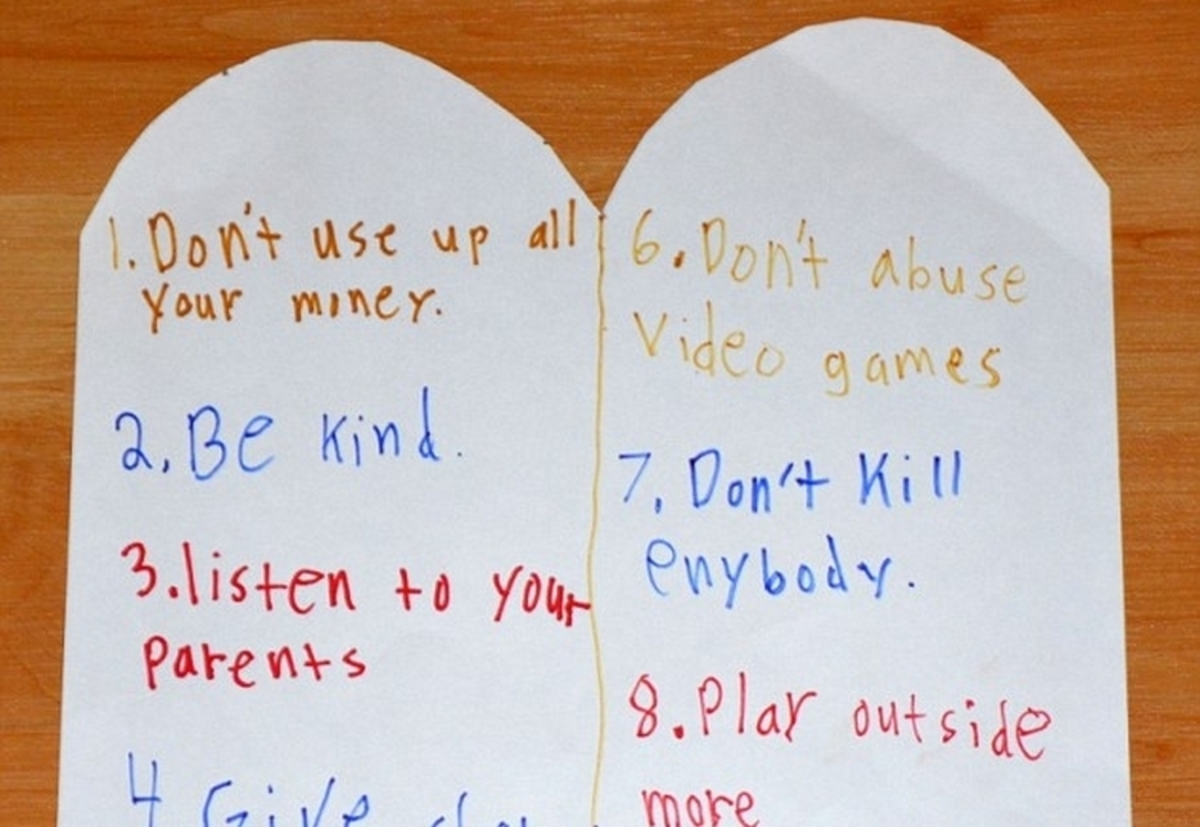 1. Don't use up all
your money.
2. Be kind.
3. listen to your
Parents
4 Give
6. Don't abuse
Video games
7. Don't Kill
enybody.
8. Play outside
more